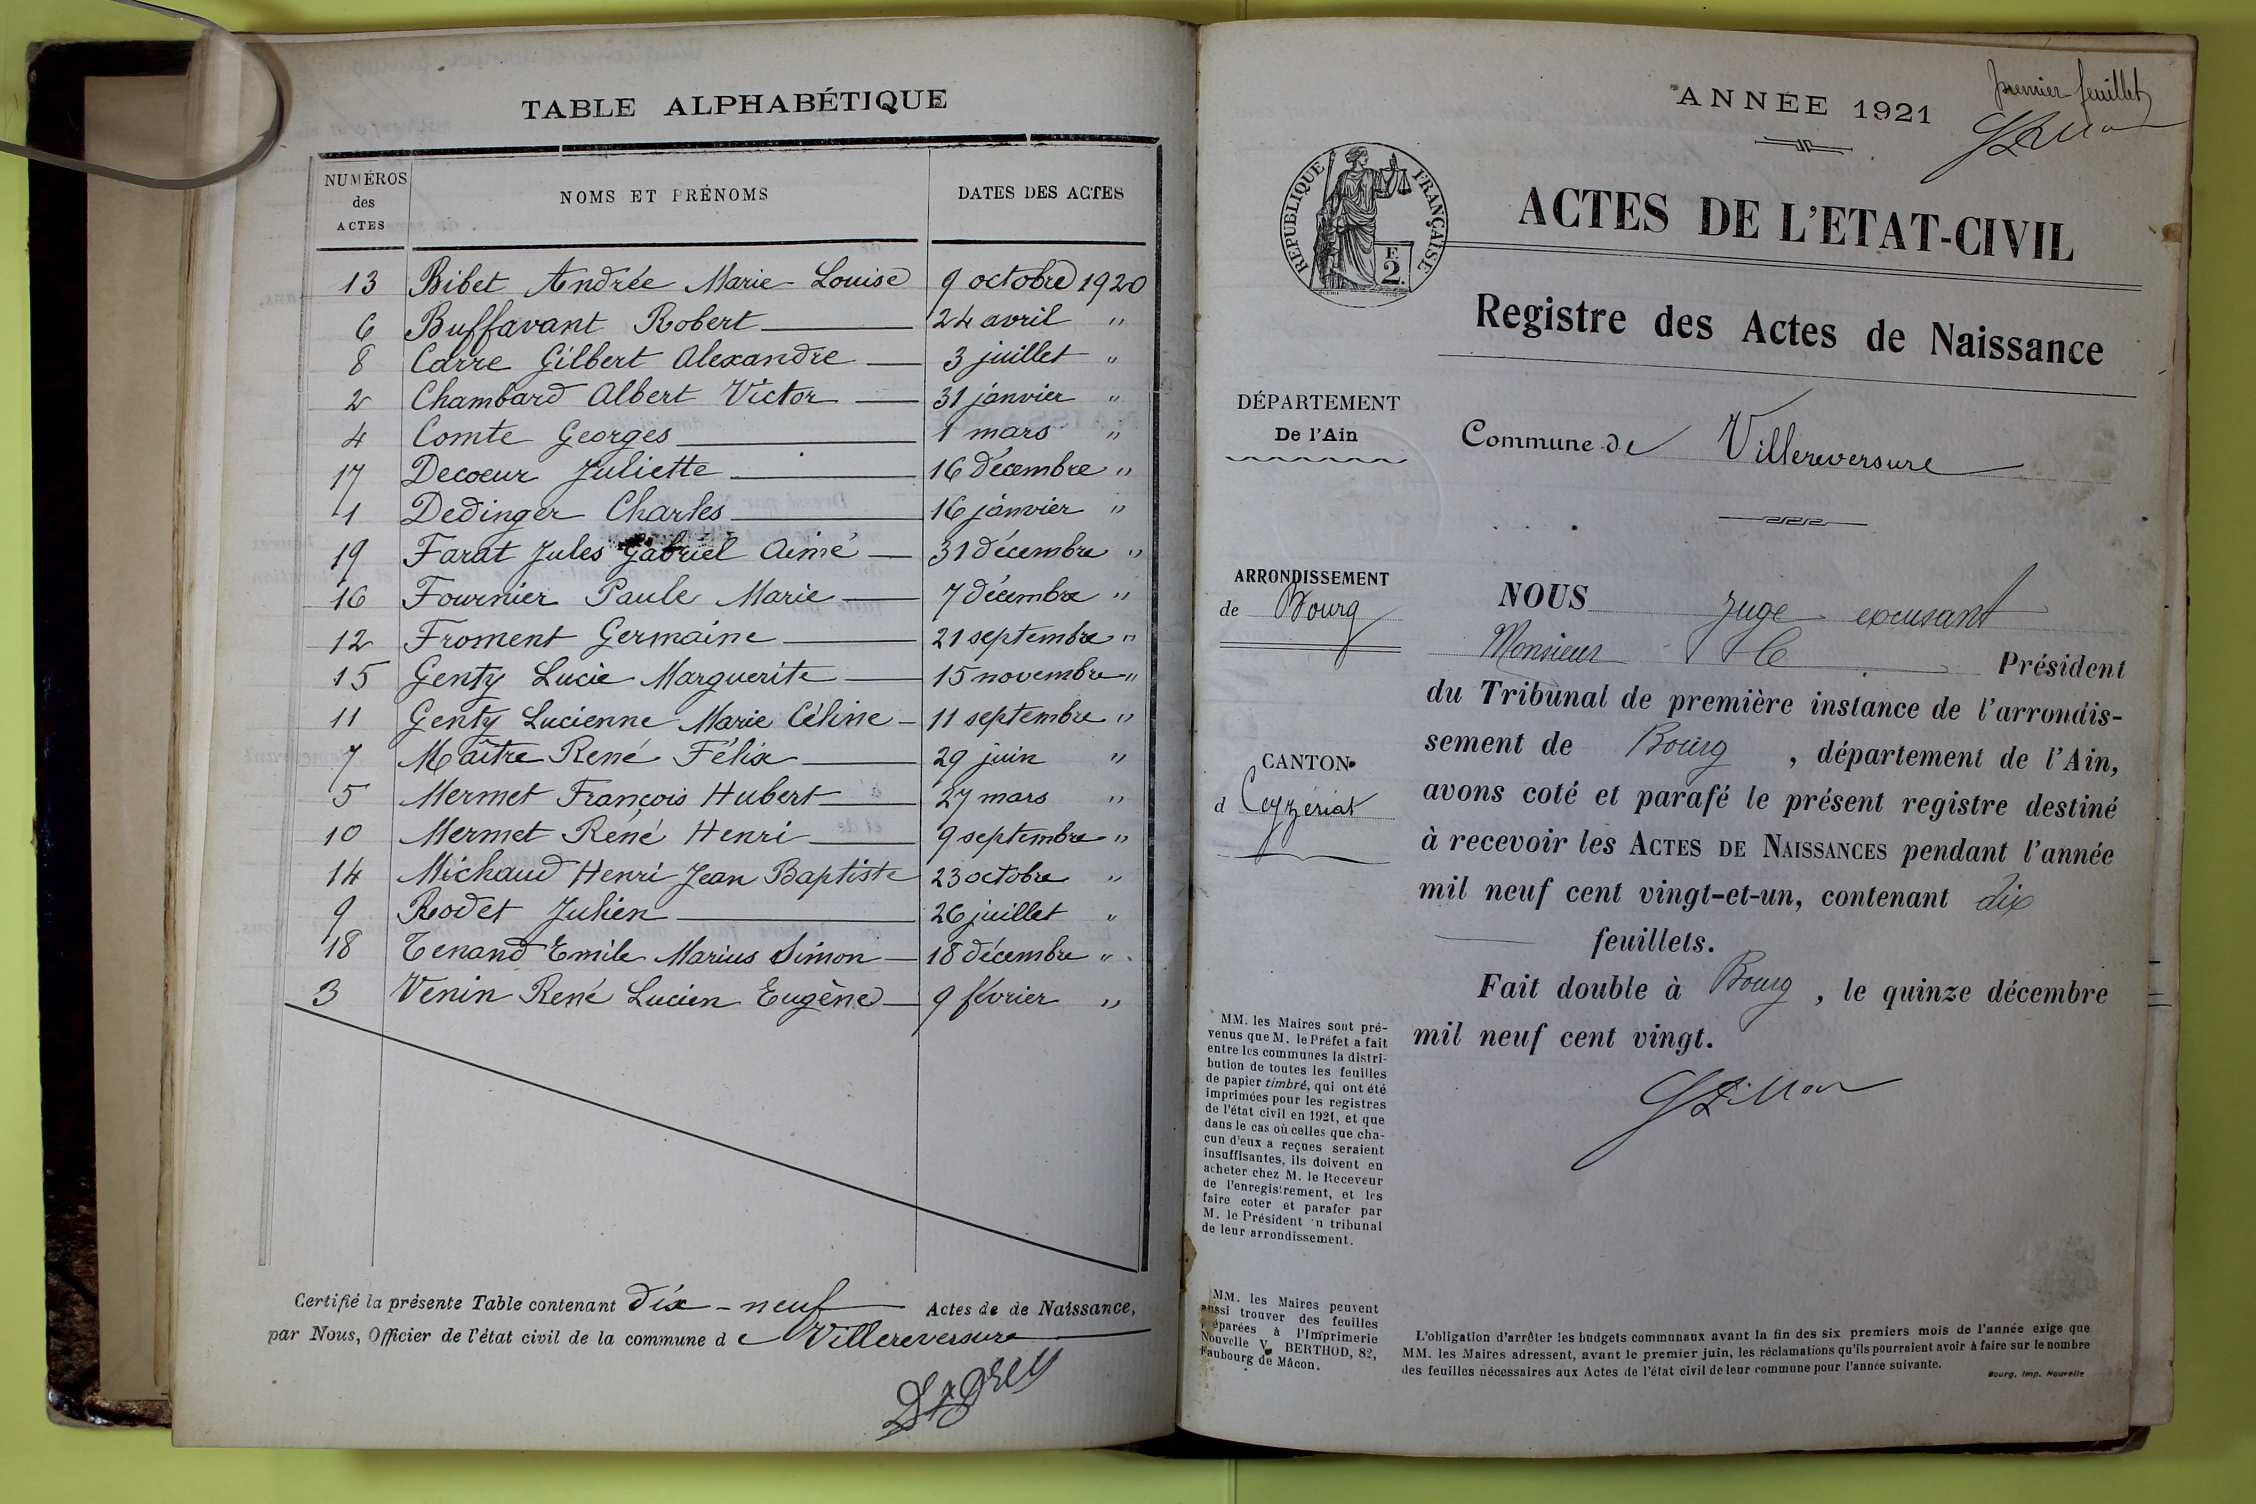 TABLE ALPHABÉTIQUE
NUMÉROS des ACTES NOMS ET PRÉNOMS DATES DES ACTES
13 Bibet Andrée Marie-Louise 9 octobre 1920
6 Buffavant Robert 24 avril "
8 Carre Gilbert Alexandre 3 juillet "
2 Chambard Albert Victor 31 janvier "
4 Comte Georges 1 mars "
17 Decoeur Juliette 16 décembre "
1 Dedinger Charles 16 janvier "
19 Farat Jules Gabriel Aimé 31 décembre "
16 Fournier Paule Marie 7 décembre "
12 Froment Germaine 21 septembre "
15 Genty Lucie Marguerite 15 novembre "
11 Genty Lucienne Marie Céline 11 septembre "
7 Maître René Félix 29 juin "
5 Mermet François Hubert 27 mars "
10 Mermet René Henri 9 septembre "
14 Michaud Henri Jean Baptiste 23 octobre "
9 Rodet Julien 26 juillet "
18 Tenand Emile Marius Simon 18 décembre "
3 Venin René Lucien Eugène 9 février "
Certifié la présente Table contenant dix-neuf Actes de de Naissance,
par Nous, Officier de l'état civil de la commune d e Villereversure
premier feuillet
ANNÉE 1921
RÉPUBLIQUE FRANÇAISE
F
2.
ACTES DE L'ETAT-CIVIL
Registre des Actes de Naissance
DÉPARTEMENT
De l'Ain
Commune de Villereversure
ARRONDISSEMENT
de Bourg
CANTON
d Ceyzériat
NOUS juge excusant
Monsieur le Président
du Tribunal de première instance de l'arrondis-
sement de Bourg, département de l'Ain,
avons coté et parafé le présent registre destiné
à recevoir les ACTES DE NAISSANCES pendant l'année
mil neuf cent vingt-et-un, contenant dix
feuillets.
Fait double à Bourg, le quinze décembre
mil neuf cent vingt.
MM. les Maires sont pré-
venus que M. le Préfet a fait
entre les communes la distri-
bution de toutes les feuilles
de papier timbré, qui ont été
imprimées pour les registres
de l'état civil en 1921, et que
dans le cas où celles que cha-
cun d'eux a reçues seraient
insuffisantes, ils doivent en
acheter chez M. le Receveur
de l'enregistrement, et les
faire coter et parafer par
M. le Président 'u tribunal
de leur arrondissement.
MM. les Maires peuvent
aussi trouver des feuilles
éparées à l'Imprimerie
Nouvelle V. BERTHOD, 82,
Faubourg de Mâcon.
L'obligation d'arrêter les budgets communaux avant la fin des six premiers mois de l'année exige que
MM. les Maires adressent, avant le premier juin, les réclamations qu'ils pourraient avoir à faire sur le nombre
des feuilles nécessaires aux Actes de l'état civil de leur commune pour l'année suivante.
Bourg, Imp. Nouvelle